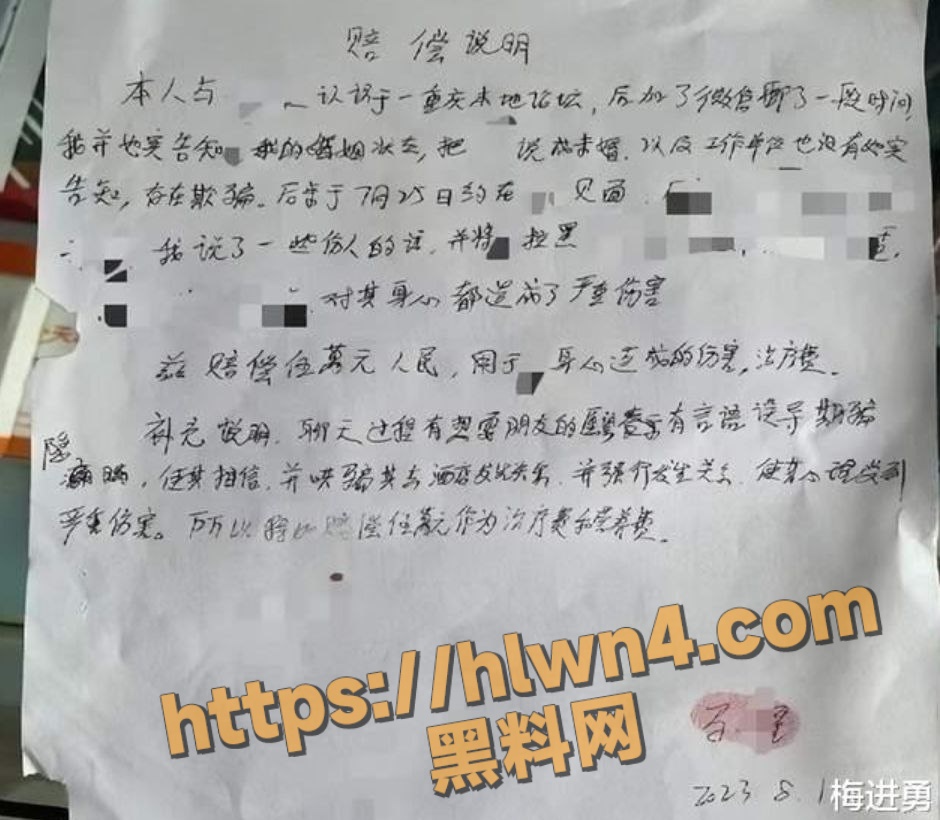 赔偿说明
本人与 认识于一重庆本地论坛，后加了微信聊了一段时间，
我并如实告知 我的婚姻状态，把 说成未婚，以及工作单位也没有如实
告知，存在欺骗。后来于7月25日约在 见面
我说了一些伤人的话，并将 拉黑
对其身心都造成了严重伤害
兹赔偿伍萬元人民，用于 身心造成的伤害，治疗费。
补充说明，聊天过程有 朋友的 有言语误导欺骗
隐瞒，使其相信，并哄骗其去酒店发生关系，并强行发生关系，使其心理受到
严重伤害。所以 赔偿伍萬元作为治疗费和营养费。
https://hlwn4.com
黑料网
2023 8.1
梅进勇